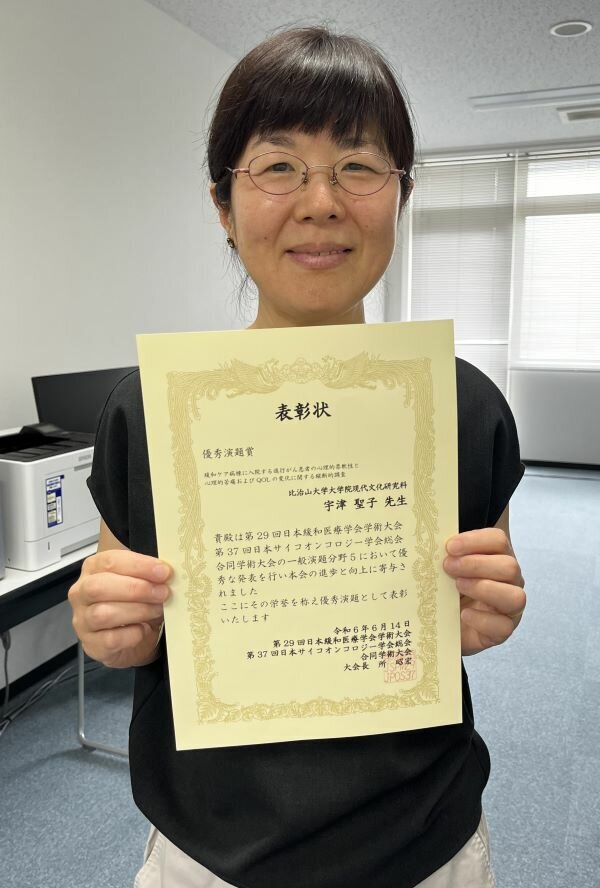 表彰状
優秀演題賞
緩和ケア病棟に入院する進行がん患者の心理的柔軟性と
心理的苦痛およびQOLの変化に関する縦断的調査
比治山大学大学院現代文化研究科
宇津 聖子 先生
貴殿は第29回日本緩和医療学会学術大会
第37回日本サイコオンコロジー学会総会
合同学術大会の一般演題分野5において優
秀な発表を行い本会の進歩と向上に寄与さ
れました
ここにその栄誉を称え優秀演題として表彰
いたします
令和6年6月14日
第29回日本緩和医療学会学術大会
第37回日本サイコオンコロジー学会総会
合同学術大会
大会長 所 昭宏
JPOS37